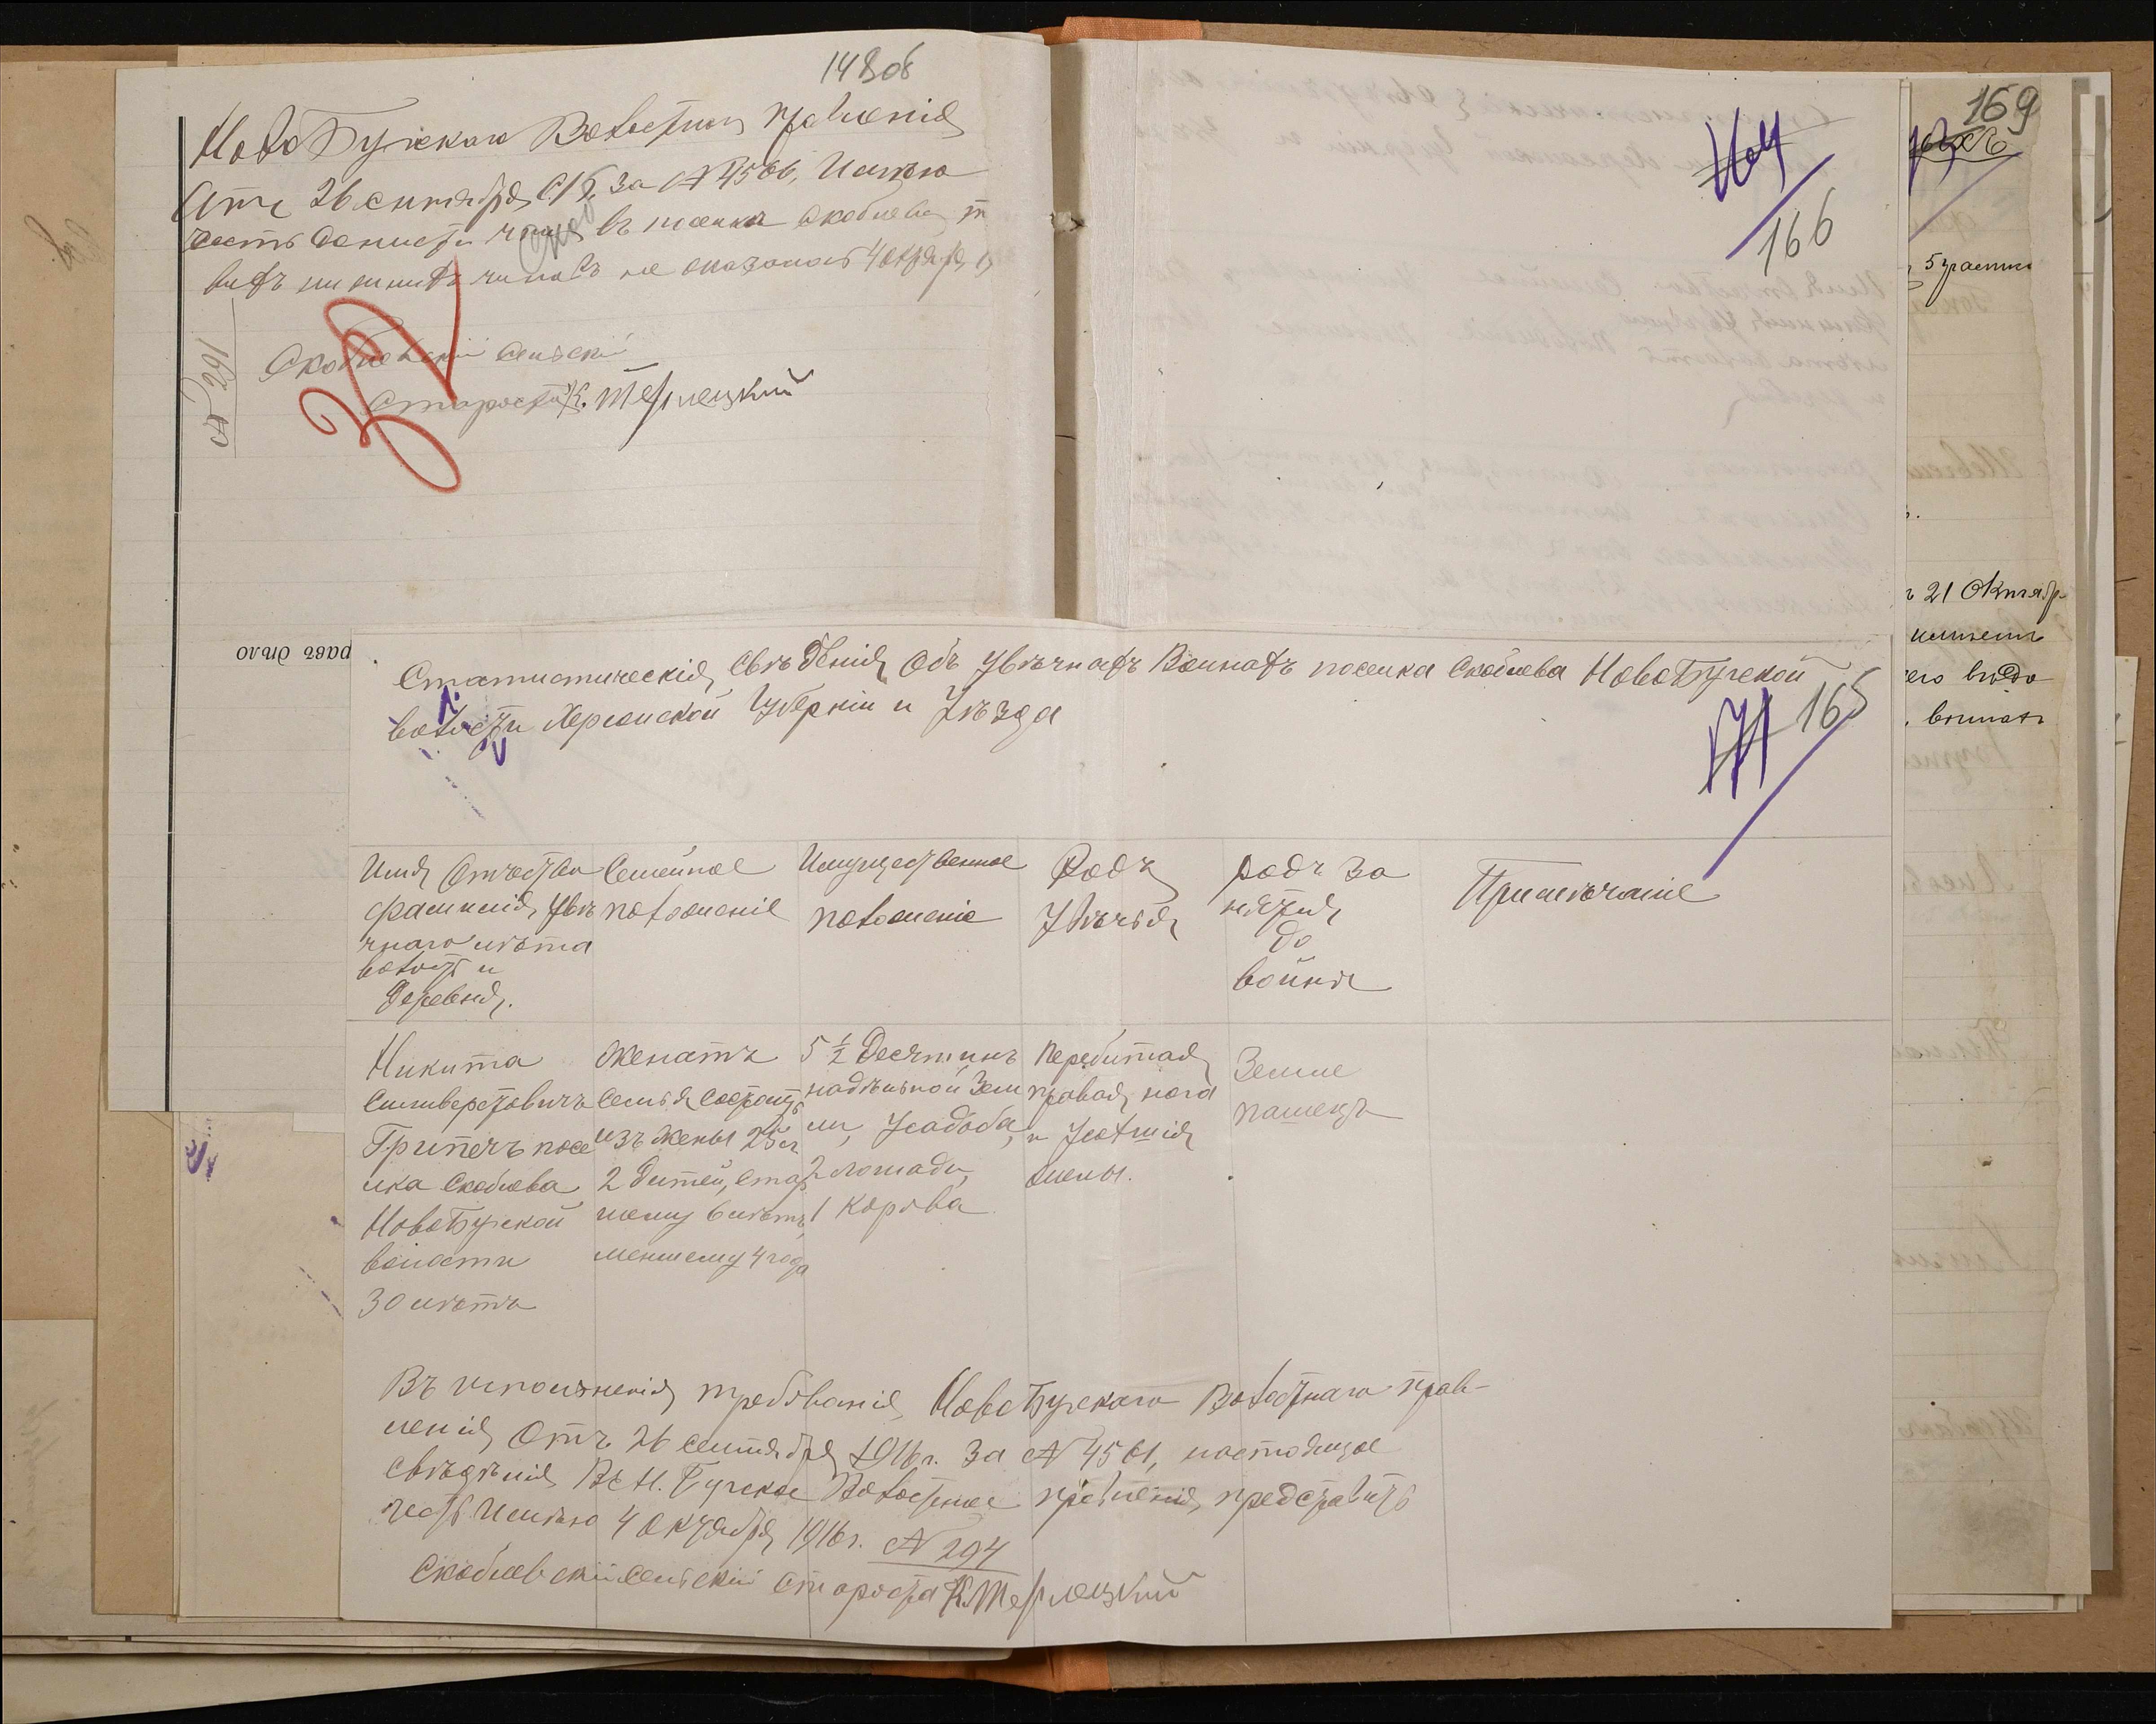 148об
НовоБугскаго Волостнаго правленія
Отъ 26 сентября с/г, за №4566, Имѣю
честь донести что въ поселкѣ Скоблева
нижнихъ чиновъ не оказалось 4 октября
№ 291
Скоблевскій Сельскій
Староста К. Терлецкий
32
166
169
5 участка
21 Октябр
Статистическія свѣдѣнія Объ увѣчнахъ Воинахъ поселка Скоблева НовоБугской
волости Херсонской Губерніи и Уѣзда
165
Имя Отчество фамилія увѣчнаго мѣста волость и Деревня.
Семейное положеніе
Имущественное положеніе
Родъ Увѣчья
родъ занятія до войны
Примѣчаніе
Никита
Сильверстовичъ
Грипечъ посе
лка Скоблева
НовоБугской
волости
30 лѣтъ
Женатъ
Семья состоитъ
изъ жены 25 л
2 дитей, стар
шему 6 лѣтъ,
меншему 4 года
5 1/2 Десятинъ
надѣльной Зем
ли, Усадьба,
2 лошади,
1 корова
Перебитая
правая нога
и
Земле
пашецъ
Въ исполненія требованія НовоБугскаго Волостнаго прав-
ленія Отъ 26 сентября 1916 г. За № 4561, настоящое
свѣдѣнія Въ Н. Бугское Волостное правленія, представить
честь Имѣю 4 октября 1916 г. № 294
Скоблевский Сельский староста К. Терлецкий